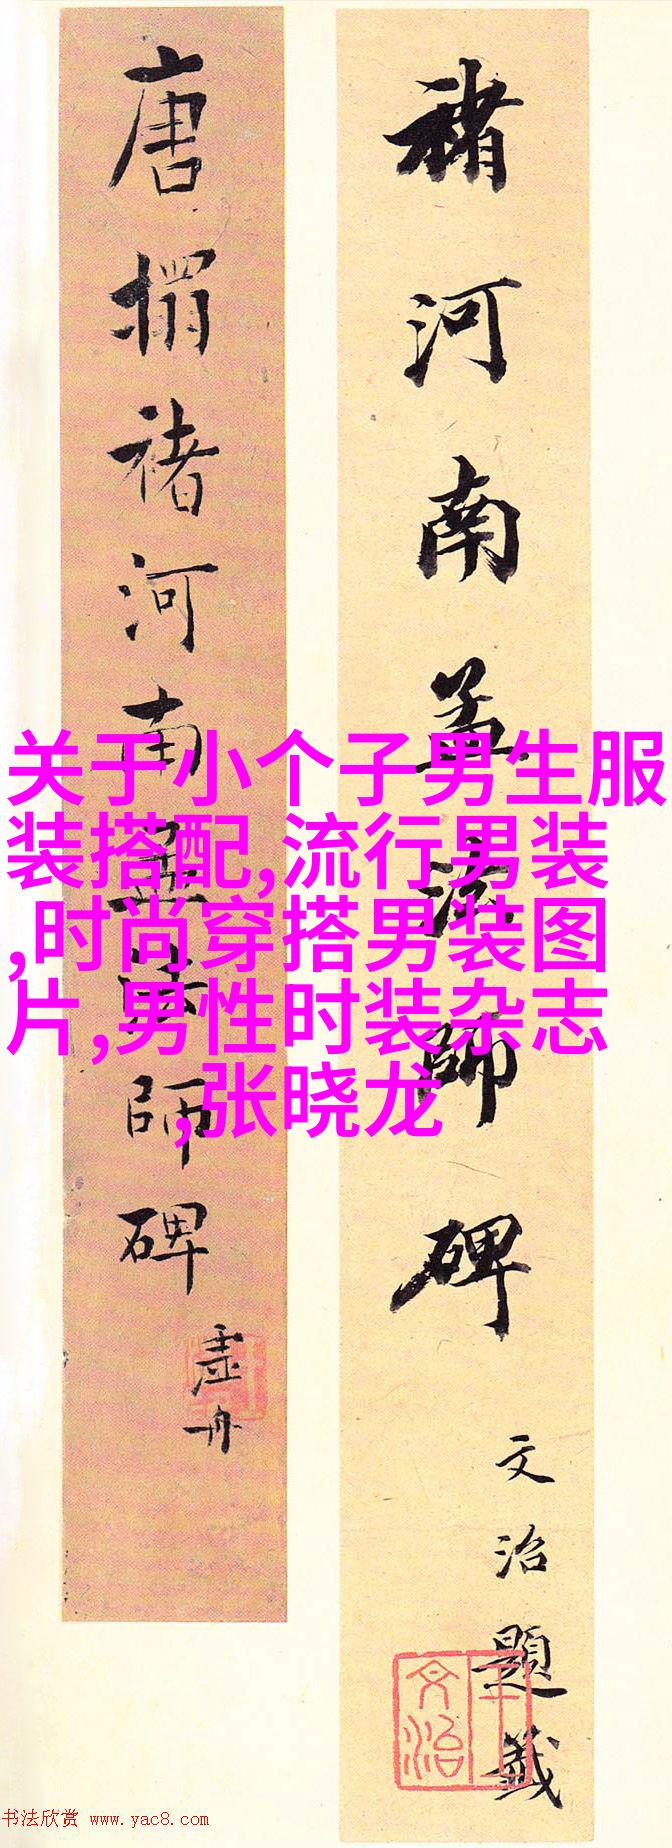 褚河南孟法師碑
文治題籤
王文治
唐搨褚河南孟法師碑
虛舟
关于小个子男生服
装搭配,流行男装
,时尚穿搭男装图
片,男性时装杂志
,张晓龙
书法欣赏 www.yac8.com